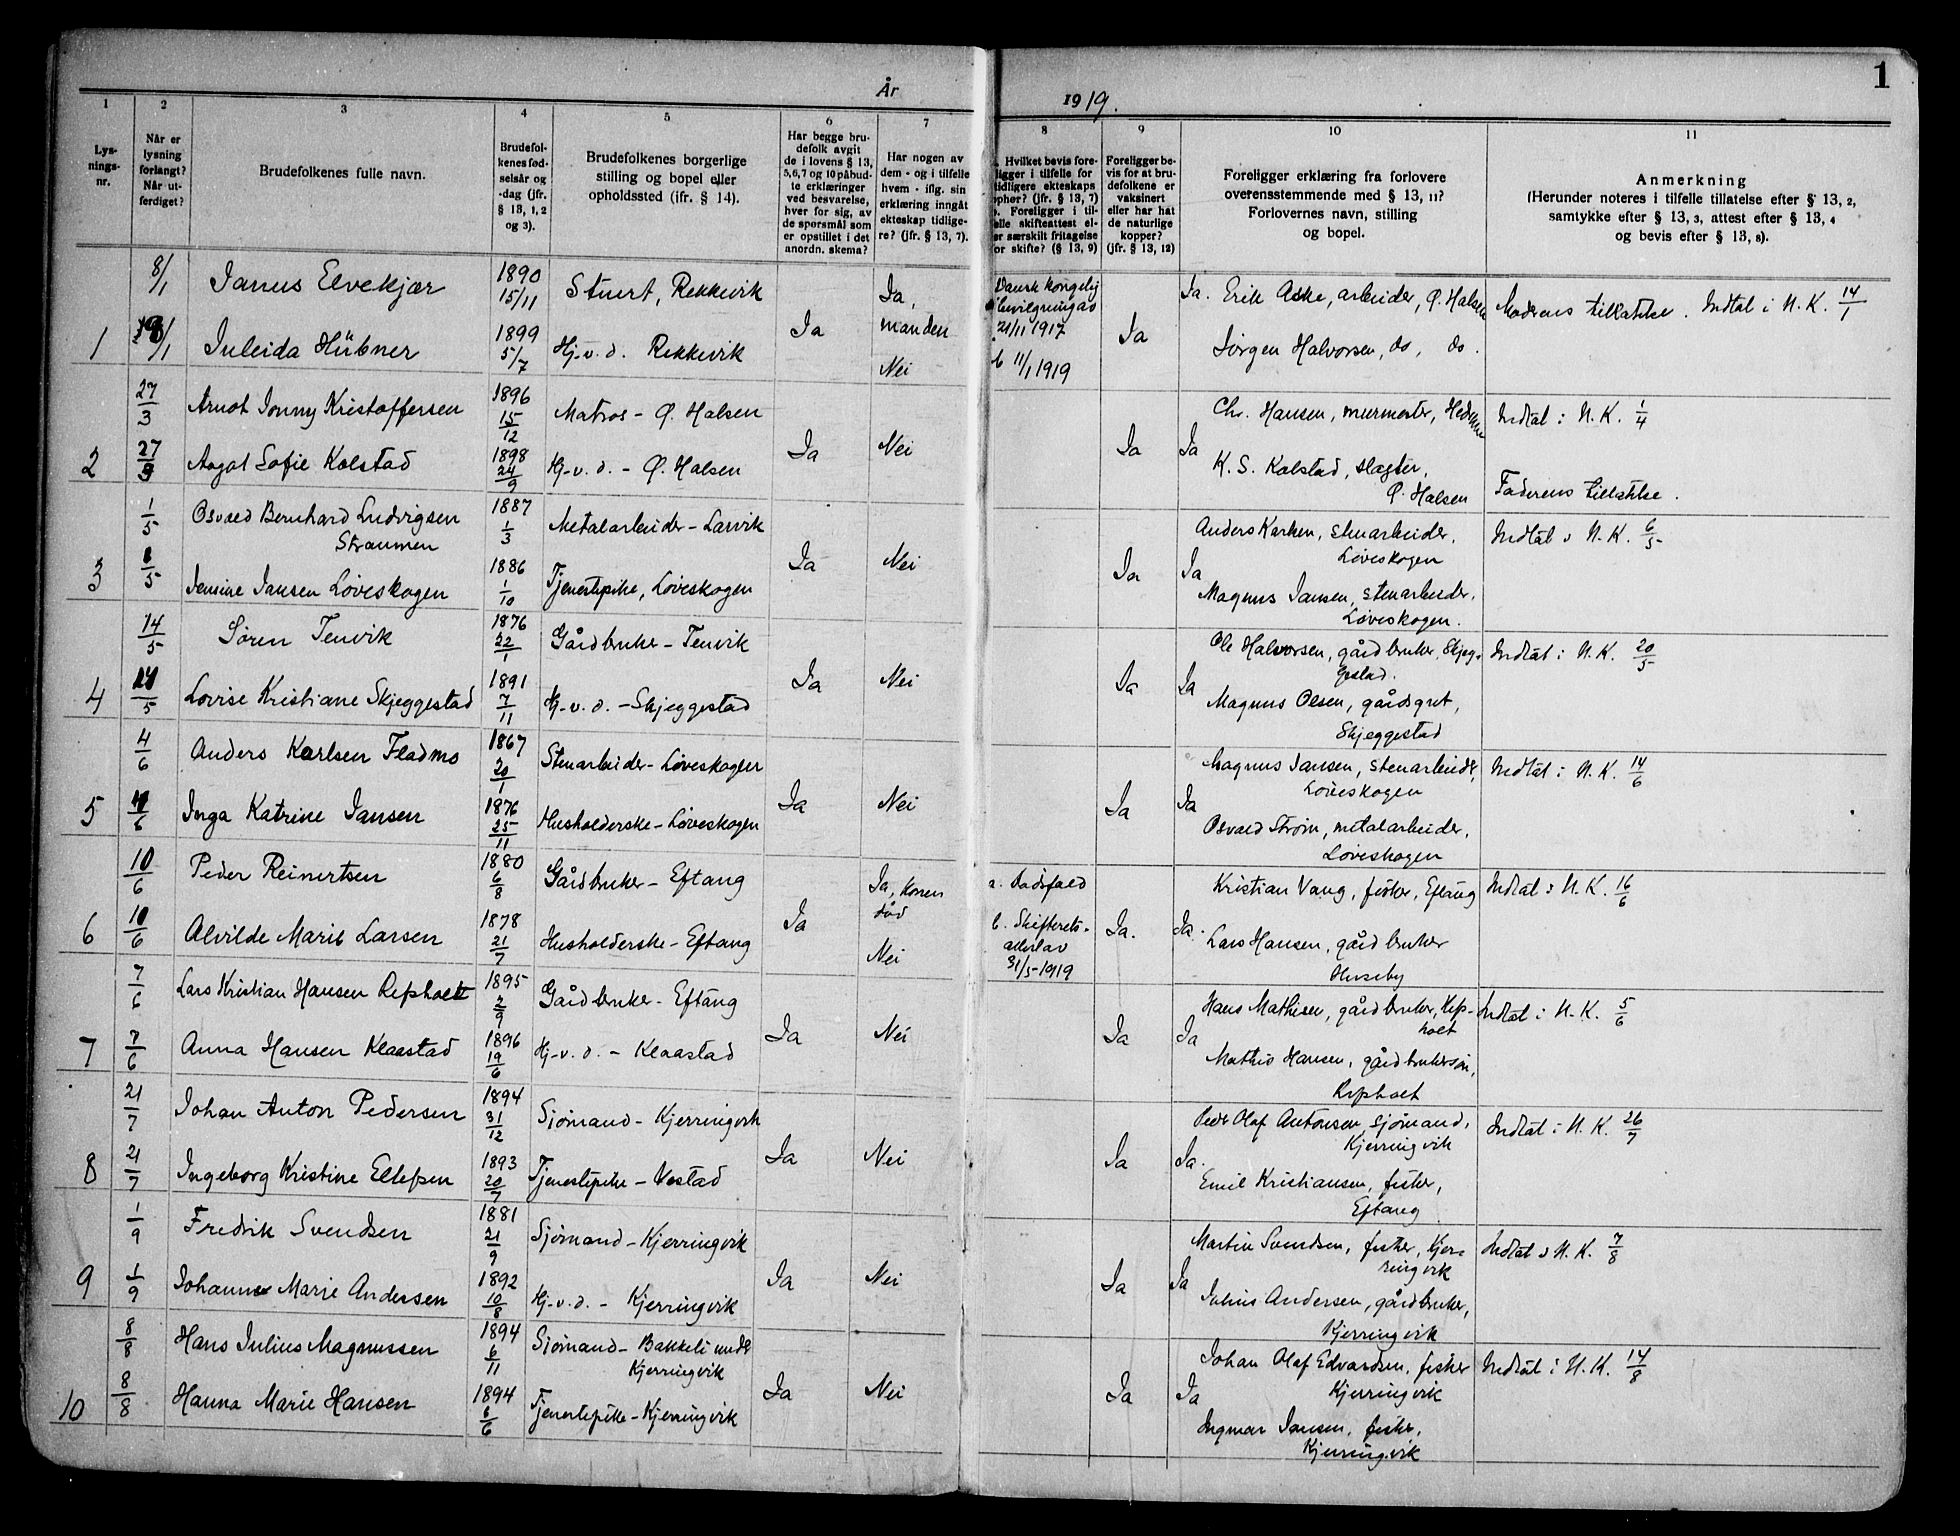 1
År
1919.
1
2
3
4
5
6
7
8
9
10
11
Lys-
nings-
nr.
Når er
lysning
forlangt?
Når ut-
ferdiget?
Brudefolkenes fulle navn.
Brudefol-
kenes fød-
selsår og
-dag (jfr.
§ 13, 1, 2
og 3).
Brudefolkenes borgerlige
stilling og bopel eller
opholdssted (jfr. § 14).
Har begge bru-
defolk avgit
de i lovens § 13,
5,6,7 og 10 påbud-
te erklæringer
ved besvarelse,
hver for sig, av
de spørsmål som
er opstillet i det
anordn. skema?
Har nogen av
dem - og i tilfelle
hvem - iflg. sin
erklæring inngåt
ekteskap tidlige-
re? (jfr. § 13, 7).
Hvilket bevis fore-
ligger i tilfelle for
tidligere ekteskaps
ophør? (jfr. § 13, 7)
Foreligger i til-
felle skifteattest el-
er særskilt fritagelse
for skifte? (§ 13, 9)
Foreligger be-
vis for at bru-
defolkene er
vaksinert
eller har hat
de naturlige
kopper?
(jfr. § 13, 12)
Foreligger erklæring fra forlovere
overensstemmende med § 13, 11?
Forlovernes navn, stilling
og bopel.
Anmerkning
(Herunder noteres i tilfelle tillatelse efter § 13, 2,
samtykke efter § 13, 3, attest efter § 13, 4
og bevis efter § 13, 8).
8/1 Janus Elvekjær 1890 15/11 Stuert, Rekkevik Ja, Dansk kongelig Ja. Erik Aske, arbeider, Ø. Halsen Moderens tillatelse. Indtat i N. K. 14/1
bevilgning av
1 /1 Juleida Hübner 1899 5/7 Hj.v.d. Rekkevik Ja manden 21/11 1917 Ja Jørgen Halvorsen, do, do.
Nei b 11/1 1919
27/3 Arnot Jonny Kristoffersen 1896 15/12 Matros - Ø. Halsen Chr. Hansen, murmester, Indtat i N. K. 1/4
2 27/3 Aagot Sofie Kolstad 1898 24/9 Hj.v.d. - Ø. Halsen Ja Nei Ja Ja K. S. Kolstad, slagter,
Ø. Halsen Faderens tillatelse.
1/5 Osvald Bernhard Ludvigsen 1887 1/3 Metalarbeider - Larvik Anders Karlsen, stenarbeider, Indtat i N. K. 6/5
Straumen Løveskogen
3 /5 Jensine Jansen Løveskogen 1886 1/10 Tjenestepike, Løveskogen Ja Nei Ja Ja Magnus Jansen, stenarbeider,
Løveskogen.
14/5 Søren Tenvik 1876 22/1 Gårdbruker - Tenvik Ole Halvorsen, gårdbruker, Skjeg- Indtat i N. K. 20/5
gestad.
4 14/5 Lovise Kristiane Skjeggestad 1891 7/11 Hj.v.d. - Skjeggestad Ja Nei Ja Ja Magnus Olsen, gårdsgut,
Skjeggestad
4/6 Anders Karlsen Fladmo 1867 20/1 Stenarbeider - Løveskogen Magnus Jansen, stenarbeider, Indtat i N. K. 14/6
Løveskogen
5 4/6 Inga Katrine Jansen 1876 25/11 Husholderske - Løveskogen Ja Nei Ja Ja Osvald Strøm, metalarbeider,
Løveskogen
10/6 Peder Reinertsen 1880 6/8 Gårdbruker - Eftang Ja, konen død a. Dødsfald Kristian Vang, fisker, Eftang Indtat i N. K. 16/6
6 10/6 Alvilde Marie Larsen 1878 21/7 Husholderske - Eftang Ja Nei b. Skifterets- Ja. Ja. Lars Hansen, gårdbruker
31/5-1919 Huseby
7/6 Lars Kristian Hansen Repholt 1895 2/9 Gårdbruker - Eftang Hans Mathisen, gårdbruker, Rep- Indtat i N. K. 5/6
holt
7 7/6 Anna Hansen Klaastad 1896 19/6 Hj.v.d. - Klaastad Ja Nei Ja Ja Mathis Hansen, gårdbrukersøn,
Repholt
21/7 Johan Anton Pedersen 1894 31/12 Sjømand - Kjerringvik Peder Olaf Antonsen, sjømand, Indtat i N. K. 26/7
Kjerringvik
8 21/7 Ingeborg Kristine Ellefsen 1893 20/7 Tjenestepike - Vestad Ja Nei Ja Ja. Emil Kristiansen, fisker,
Eftang
1/9 Fredrik Svendsen 1881 21/9 Sjømand - Kjerringvik Martin Svendsen, fisker, Kjer- Indtat i N. K. 7/8
ringvik
9 1/9 Johanne Marie Andersen 1892 10/8 Hj.v.d. - Kjerringvik Ja Nei Ja Ja Julius Andersen, gårdbruker,
Kjerringvik
8/8 Hans Julius Magnussen 1894 6/11 Sjømand - Bakkeli under Johan Olaf Edvardsen, fisker Indtat i N. K. 14/8
Kjerringvik Kjerringvik
10 8/8 Hanna Marie Hansen 1894 6/6 Tjenestepike - Kjerringvik Ja Nei Ja Ja Ingmar Jansen, fisker,
Kjerringvik